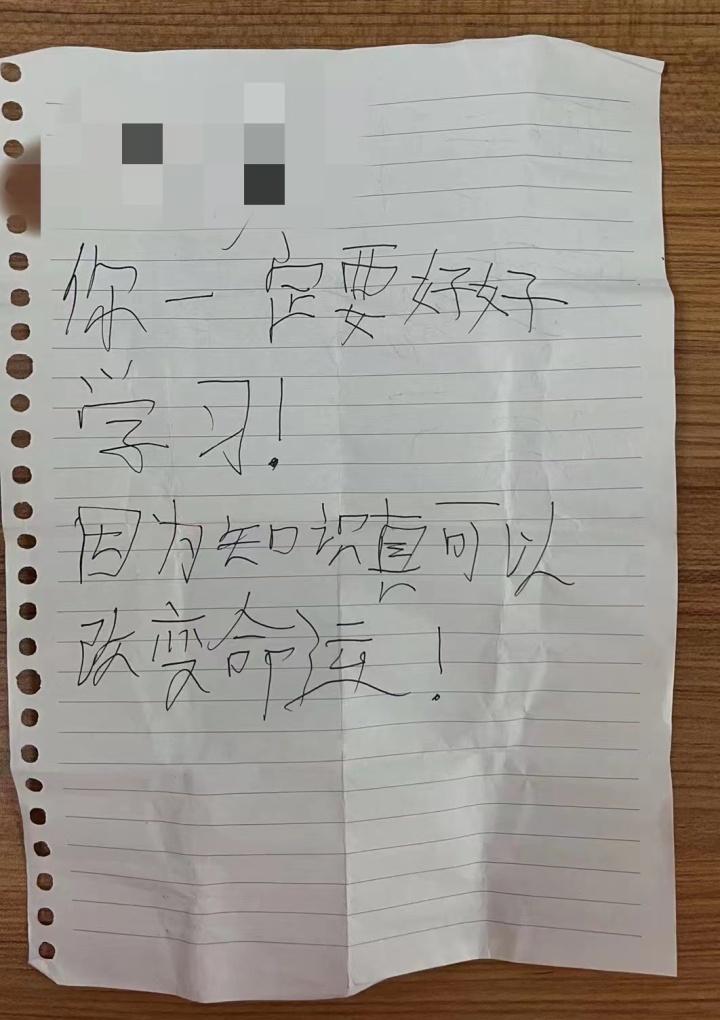 你一定要好好
学习!
因为知识真可以
改变命运!